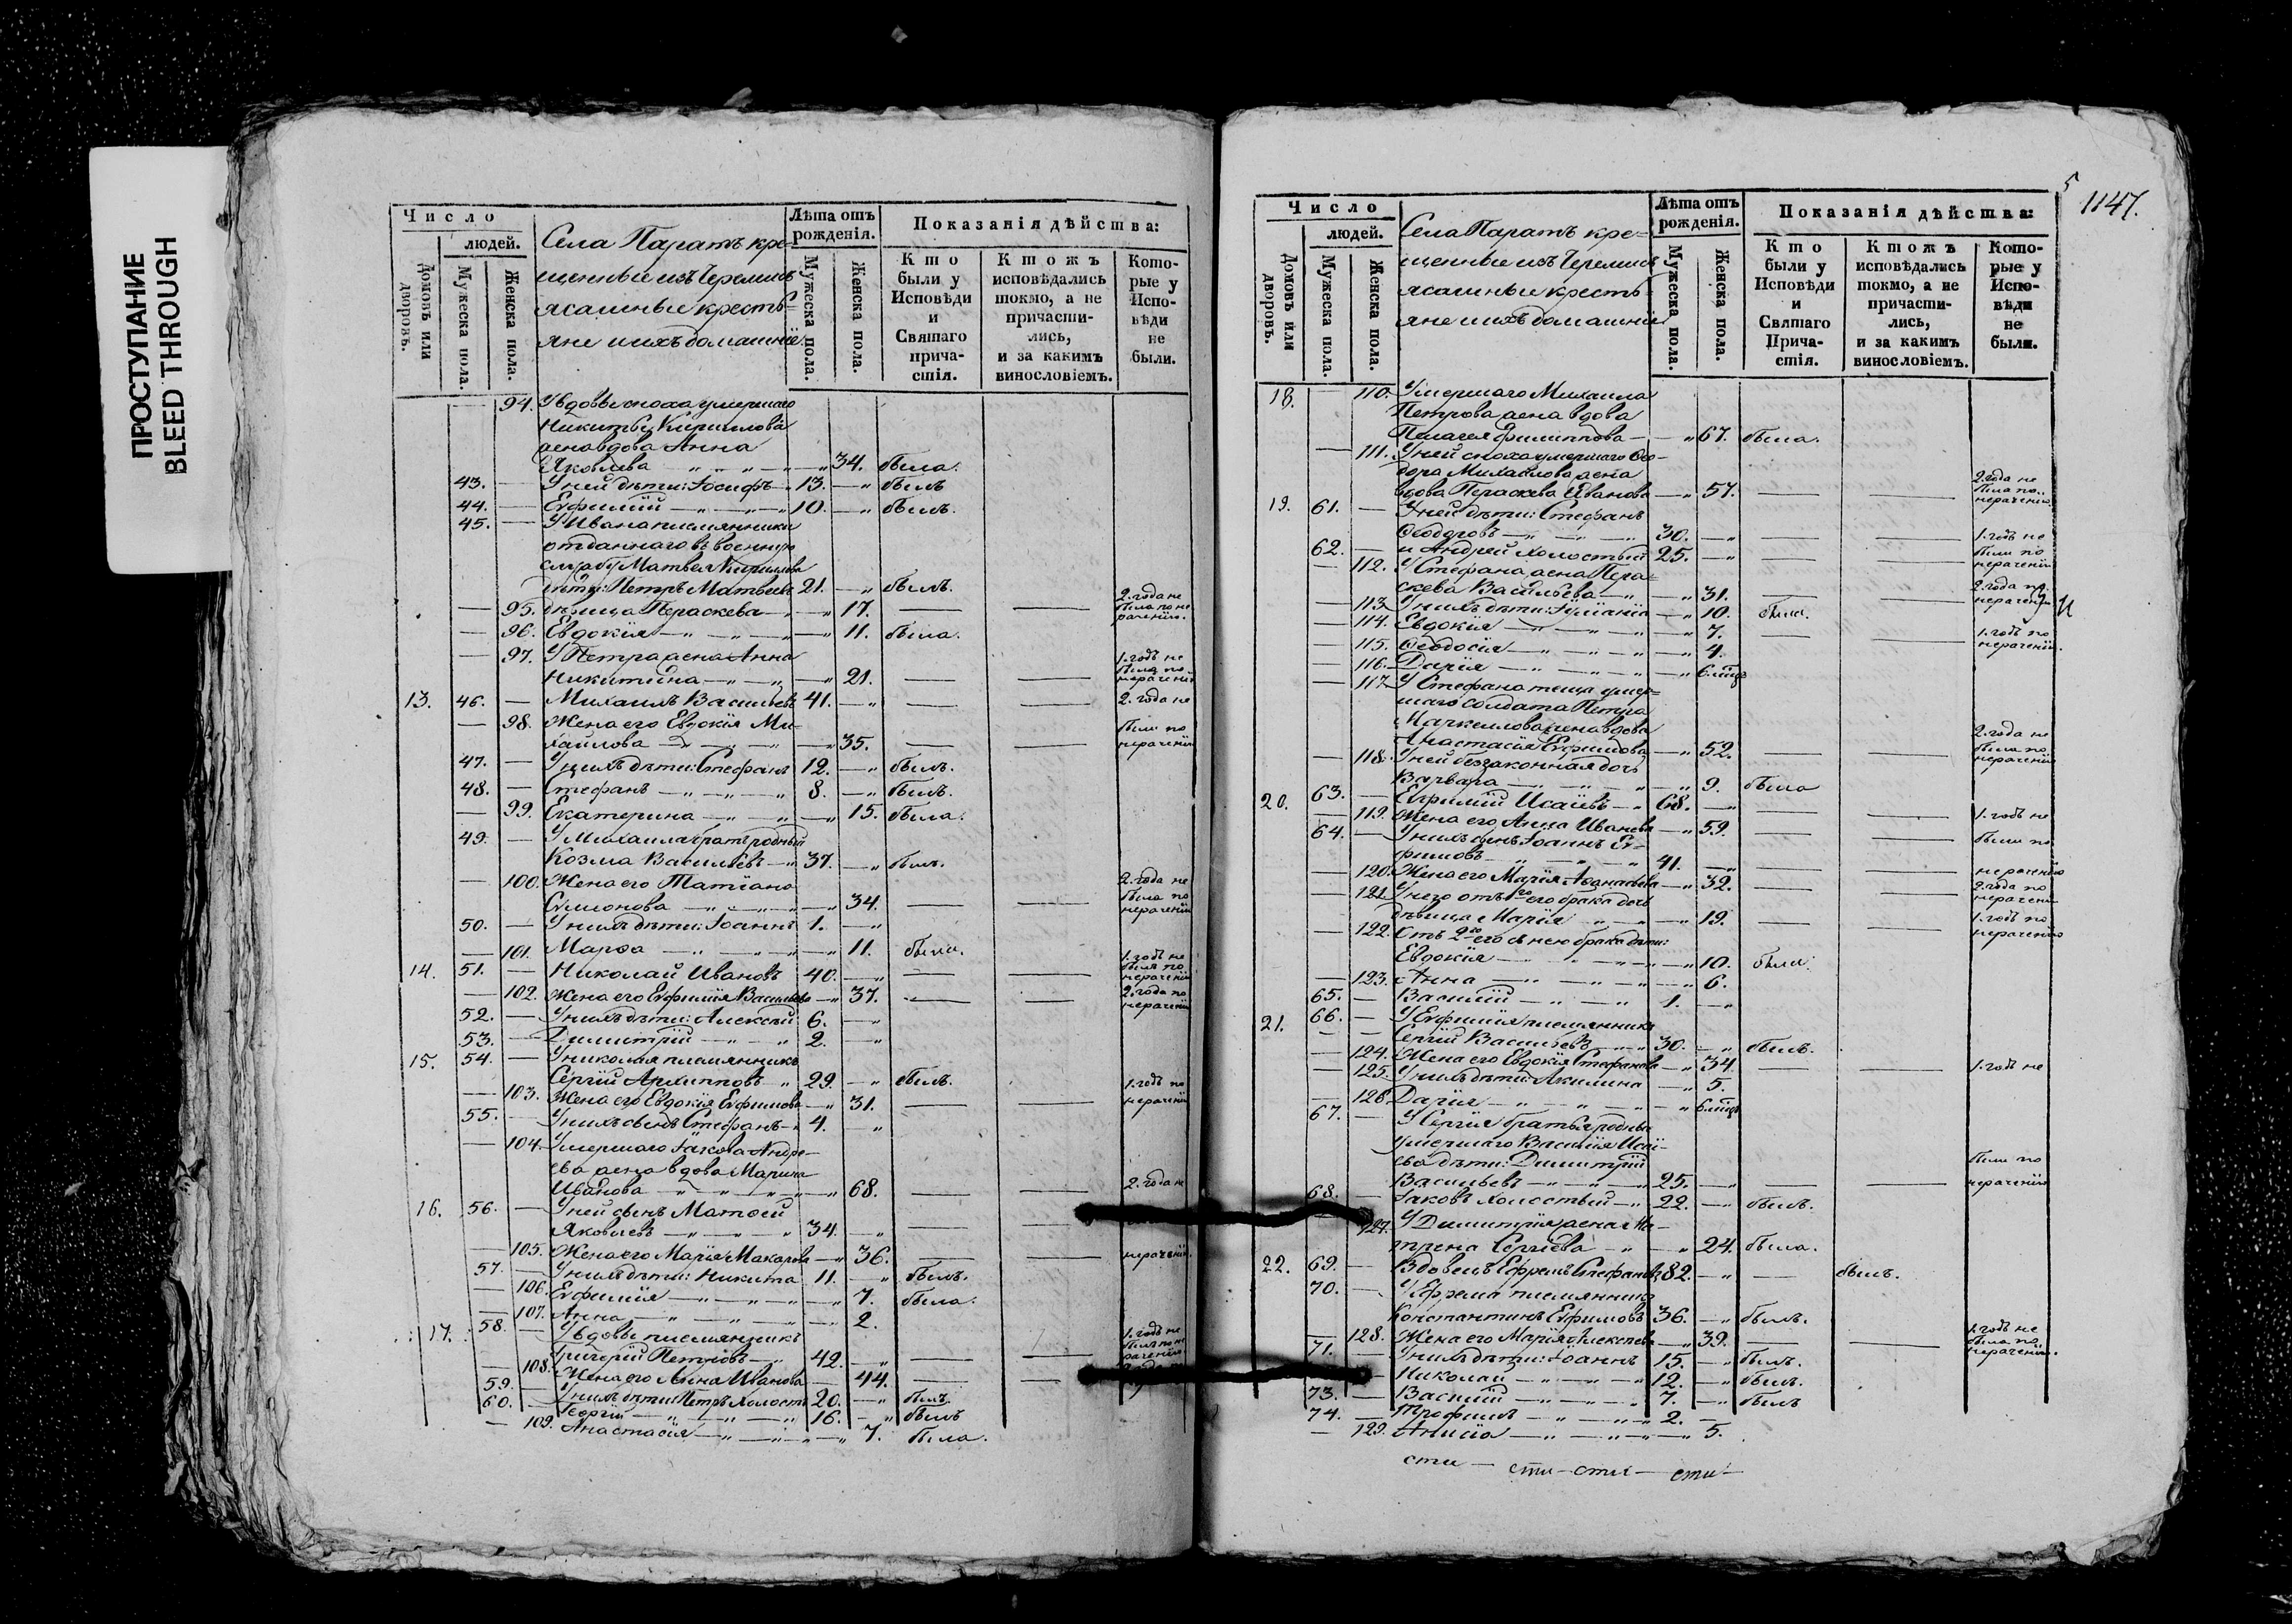 ПРОСТУПАНИЕ
BLEED THROUGH
Число
людей.
Домовъ или дворовъ.
Мужеска пола.
Женска пола.
Села Паратъ кре-
щенные изъ Черемисъ
ясашные кресть-
яне и ихъ домашніе.
Лѣта отъ рожденія.
Мужеска пола.
Женска пола.
Показанія дѣйства:
Кто были у Исповѣди и Святаго прича- стія.
Ктожъ исповѣдались токмо, а не причасти- лись, и за какимъ винословіемъ.
Кото- рые у Испо- вѣди не были.
— 94. У вдовы сноха умершаго
Никиты Кириллова
жена вдова Анна
Яковлева — 34. была.
43. — У ней дѣти: Іосифъ 13. — былъ
44. — Евфимій — 10. — былъ.
45. — У Ивана племянника
отданнаго въ военную
службу Матвея Кириллова
дѣти: Петръ Матвеевъ 21. — былъ.
— 95. дѣвица Параскева — 17. — — 2. года не была по не раченію.
— 96. Евдокія — 11. была.
— 97. У Петра жена Анна
Никитина — 21. — — 1. годъ не была по нерачению
13. 46. — Михаилъ Васильевъ 41. — — — 2. года не
— 98. Жена его Евдокія Ми-
хайлова — 35. — — были по нерачению
47. — У нихъ дѣти: Стефанъ 12. — былъ.
48. — Стефанъ — 8. — былъ.
— 99. Екатерина — 15. была.
49. — У Михаила братъ родный
Козма Васильевъ — 37. — былъ.
— 100. Жена его Татіана
Симионова — 34. — — 2. года не была по нерачению
50. — У нихъ дѣти: Іоаннъ 1. —
— 101. Марѳа — 11. была.
14. 51. — Николай Ивановъ 40. — — — 1. годъ не былъ по нерачению
— 102. Жена его Евфимія Васильева — 37. — — 2. года по нерачению
52. — У нихъ дѣти: Алексѣй 6. —
53. — Димитрій — 2. —
15. 54. — У Николая племянникъ
Сергій Архипповъ 29. — былъ.
— 103. Жена его Евдокія Евфимова — 31. — — 1. годъ по нерачению
55. — У нихъ сынъ Стефанъ 4. —
— 104. Умершаго Іакова Андре-
ева жена вдова Марина
Иванова — 68. — — 2. года не
16. 56. — У ней сынъ Матѳей
Яковлевъ — 34. — — —
— 105. Жена его Марія Макарова — 36. — — нерачению.
57. — У нихъ дѣти: Никита 11. — былъ.
— 106. Евфимія — 7. была.
— 107. Анна — 2.
17. 58. — У вдовы племянникъ
Григорій Петровъ 42. — — — 1. годъ не былъ по не рачению
— 108. Жена его Анна Иванова — 44. — —
59. — У нихъ дѣти: Петръ холостъ 20. — былъ.
60. — Георгій — 16. — былъ
— 109. Анастасія — 7. была.
5
1147.
Число
людей.
Домовъ или дворовъ.
Мужеска пола.
Женска пола.
Села Паратъ кре-
щенные изъ Черемисъ
ясашные кресть-
яне и ихъ домашніе
Лѣта отъ рожденія.
Мужеска пола.
Женска пола.
Показанія дѣйства:
Кто были у Исповѣди и Святаго Прича- стія.
Ктожъ исповѣдались токмо, а не причасти- лись, и за какимъ винословіемъ.
Кото- рые у Испо- вѣди не были.
18. — 110. Умершаго Михаила
Петрова жена вдова
Пелагея Филиппова — 67. была.
— 111. У ней сноха умершаго Ѳео-
дора Михайлова жена
вдова Параскева Иванова — 57. — — 2. года не была по нерачению
19. 61. — У ней дѣти: Стефанъ
Ѳеодоровъ — 30. — — — 1. годъ не
62. — и Андрей холостый 25. — — — были по нерачению
— 112. У Стефана жена Пара-
скева Васильева — 31. — — 2. года по нерачению
— 113. У нихъ дѣти: Іуліанія — 10. была.
— 114. Евдокія — 7. — — 1. годъ по нерачению.
— 115. Ѳеодосія — 4.
— 116. Дарія — 6. мѣц.
— 117. У Стефана теща умер-
шаго солдата Петра
Маркеллова жена вдова
Анастасія Евфимова — 52. — — 2. года не была по нерачению
— 118. У ней беззаконная дочь
Варвара — 9. была
20. 63. — Евфимій Исаіевъ 68. — — — 1. годъ не
— 119. Жена его Анна Иванова — 59. — — были по
64. — У нихъ сынъ Іоаннъ Ев-
фимовъ — 41. — — — нерачению
— 120. Жена его Марія Аѳанасьева — 32. — — 2. года по нерачению
— 121. У него отъ 1го его брака дочь
дѣвица Марія — 19. — — 1. годъ по нерачению
— 122. Отъ 2го его съ нею брака дѣти:
Евдокія — 10. была.
— 123. Анна — 6.
65. — Василій — 1. —
21. 66. — У Евфимія племянникъ
Сергій Васильевъ — 30. — былъ.
— 124. Жена его Евдокія Стефанова — 34. — — 1. годъ не
— 125. У нихъ дѣти: Акилина — 5.
— 126. Дарія — 6. мѣц.
67. — У Сергія братья родные
умершаго Василія Исаі-
ева дѣти: Димитрій
Васильевъ — 25. — — — были по нерачению
68. — Іаковъ холостый 22. — былъ.
127. У Димитрія жена Ма-
трена Сергіева — 24. была.
22. 69. — Вдовецъ Ефремъ Стефановъ 82. — — былъ.
70. — У Ефрема племянникъ
Константинъ Евфимовъ 36. — былъ.
— 128. Жена его Марія Алексѣева — 39. — — 1. годъ не была по нерачению.
71. — У нихъ дѣти: Іоаннъ 15. — былъ.
Николай — 12. — былъ.
73. — Василій — 7. — былъ
74. — Трофимъ — 2. —
— 129. Анисія — 5.
сти — сти — сти — сти —